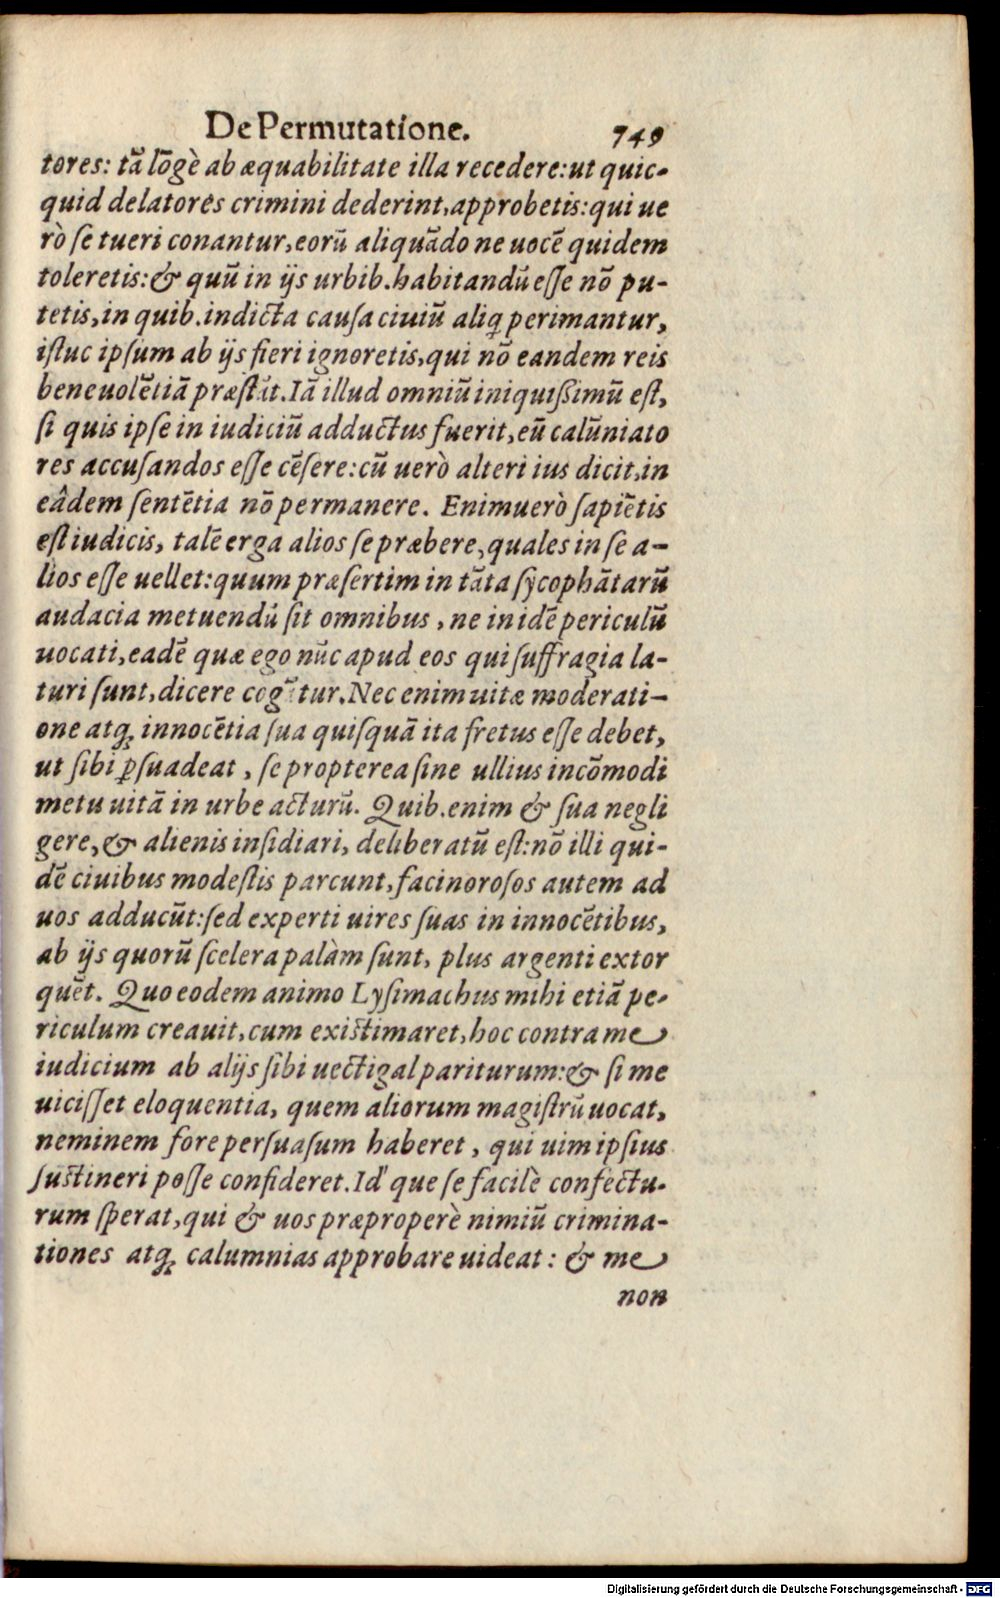 De Permutatione. 749
tores: tā lōgè ab æquabilitate illa recedere:ut quic-
quid delatores crimini dederint,approbetis:qui ue
rò ſe tueri conantur,eorū aliquādo ne uocē quidem
toleretis:& quū in ijs urbib.habitandū eſſe nō pu-
tetis,in quib.indicta cauſa ciuiū aliq̃ perimantur,
iſtuc ipſum ab ijs fieri ignoretis,qui nō eandem reis
beneuolētiā præſtāt.Iā illud omniū iniquiſsimū eſt,
ſi quis ipſe in iudiciū adductus fuerit,eū calūniato
res accuſandos eſſe cēſere:cū uerò alteri ius dicit,in
eâdem ſentētia nō permanere. Enimuerò ſapiētis
eſt iudicis, talē erga alios ſe præbere,quales in ſe a-
lios eſſe uellet:quum præſertim in tāta ſycophātarū
audacia metuendū ſit omnibus , ne in idē periculū
uocati,eadē quæ ego nūc apud eos qui ſuffragia la-
turi ſunt,dicere cogātur.Nec enim uitæ moderati-
one atq; innocētia ſua quiſquā ita fretus eſſe debet,
ut ſibi ꝑſuadeat , ſe propterea ſine ullius incōmodi
metu uitā in urbe acturū. Quib.enim & ſua negli
gere,& alienis inſidiari, deliberatū eſt:nō illi qui-
dē ciuibus modeſtis parcunt,facinoroſos autem ad
uos adducūt:ſed experti uires ſuas in innocētibus,
ab ijs quorū ſcelera palàm ſunt, plus argenti extor
quēt. Quo eodem animo Lyſimachus mihi etiā pe-
riculum creauit,cum exiſtimaret,hoc contra me
iudicium ab alijs ſibi uectigal pariturum:& ſi me
uiciſſet eloquentia, quem aliorum magiſtrū uocat,
neminem fore perſuaſum haberet , qui uim ipſius
ſuſtineri poſſe confideret.Id' que ſe facilè confectu-
rum ſperat,qui & uos præproperè nimiū crimina-
tiones atq; calumnias approbare uideat : & me
non
Digitalisierung gefördert durch die Deutsche Forschungsgemeinschaft - DFG